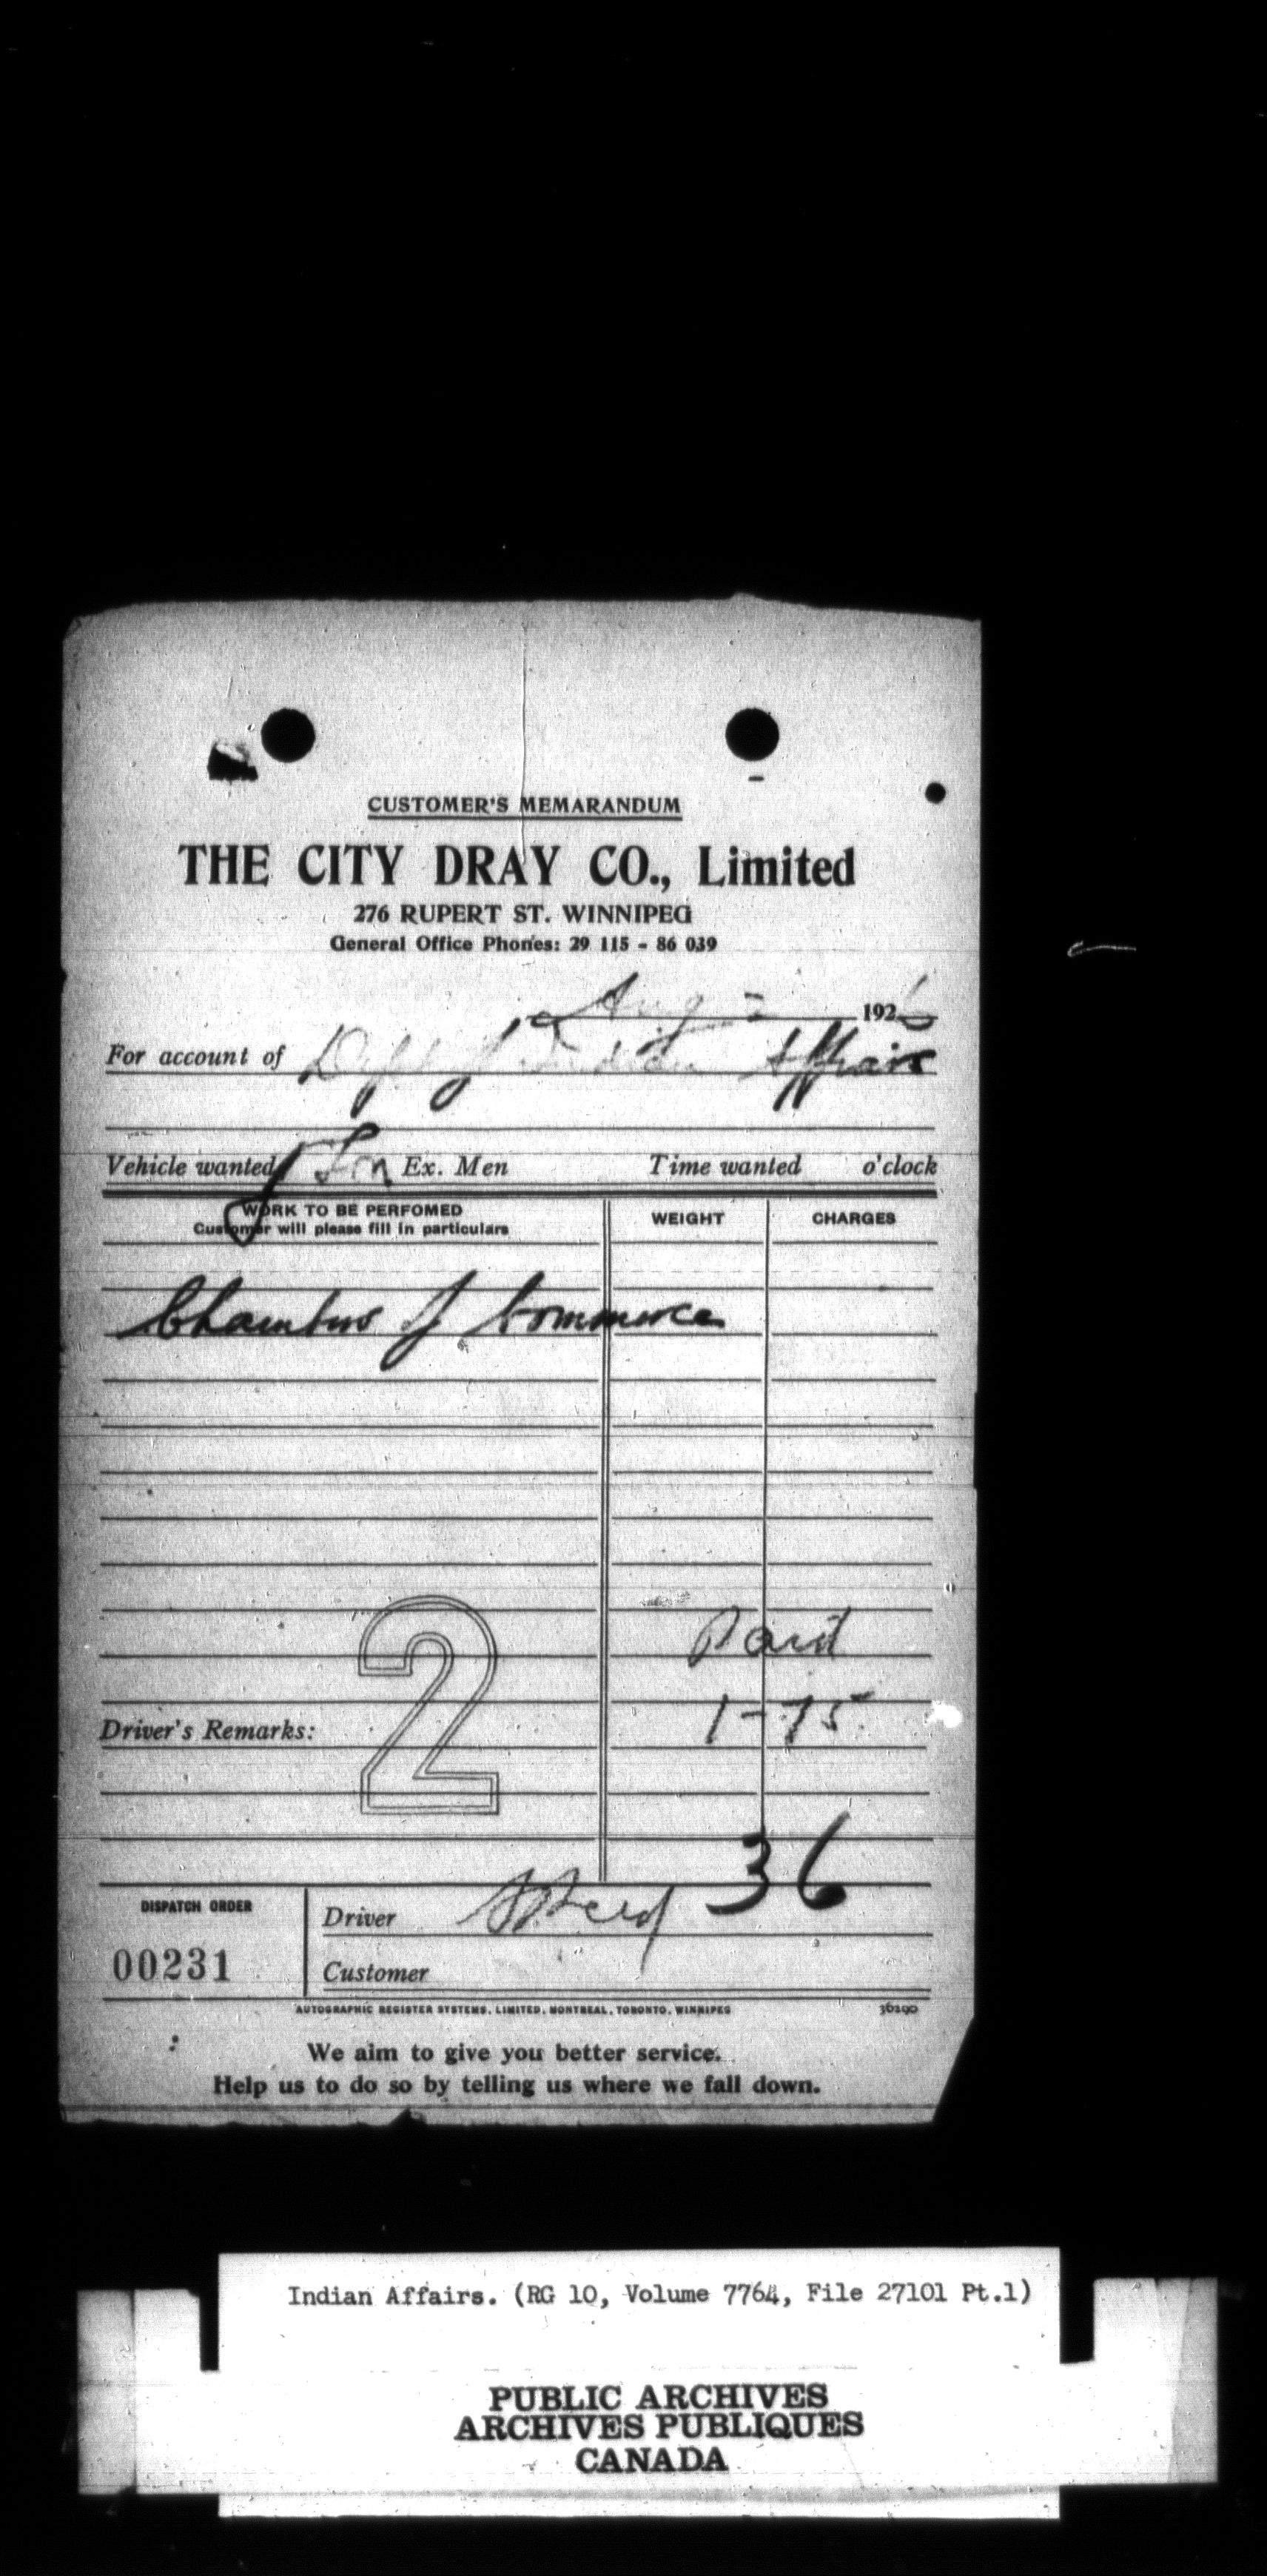 CUSTOMER'S MEMARANDUM
THE CITY DRAY CO., Limited
276 RUPERT ST. WINNIPEG
General Office Phones: 29 115 - 86 039
Aug 2 1926
For account of Dept of Indian Affairs
Vehicle wanted Ex. Men Time wanted o'clock
WORK TO BE PERFOMED WEIGHT CHARGES
Customer will please fill in particulars
Chambers of Commerce
2
Paid
1-75
Driver's Remarks:
36
DISPATCH ORDER Driver
00231 Customer
AUTOGRAPHIC REGISTER SYSTEMS, LIMITED, MONTREAL, TORONTO, WINNIPEG 36290
We aim to give you better service.
Help us to do so by telling us where we fall down.
Indian Affairs. (RG 10, Volume 7764, File 27101 Pt.1)
PUBLIC ARCHIVES
ARCHIVES PUBLIQUES
CANADA